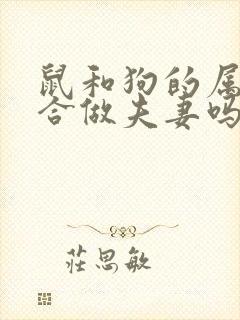 鼠和狗的属
合做夫妻吗
莊思敏